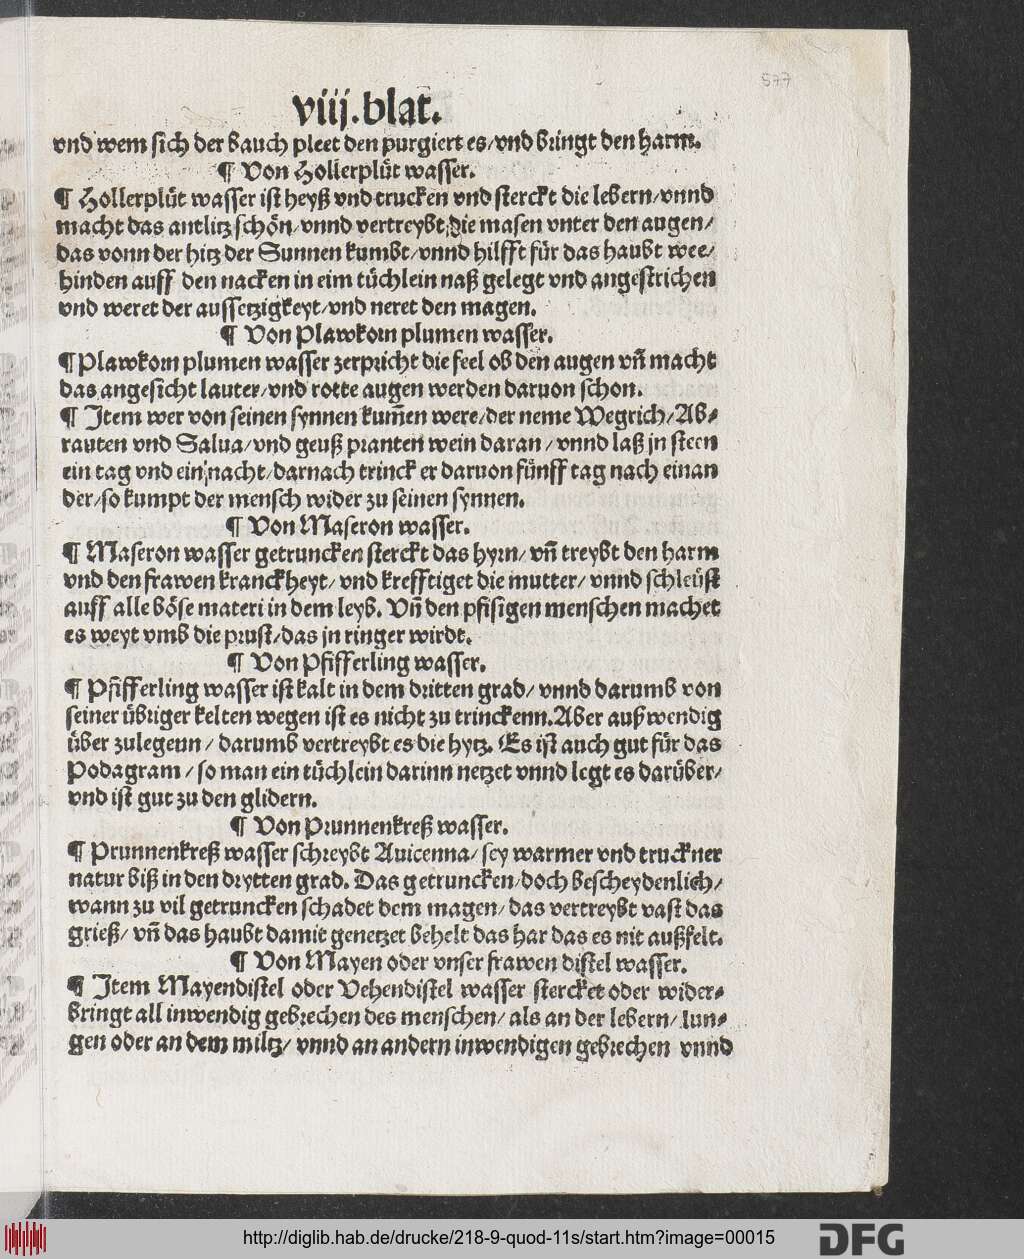 577
viij.blat.
vnd wem sich der bauch pleet den purgiert es/vnd bringt den harm.
¶ Von Hollerplüt wasser.
¶ Hollerplüt wasser ist heyß vnd trucken vnd sterckt die lebern/vnnd
macht das antlitz schön/vnnd vertreybt die masen vnter den augen/
das vonn der hitz der Sunnen kumbt/vnnd hilfft für das haubt wee/
hinden auff den nacken in eim tüchlein naß gelegt vnd angestrichen
vnd weret der aussetzigkeyt/vnd neret den magen.
¶ Von Plawkorn plumen wasser.
¶ Plawkorn plumen wasser zerpricht die feel ob den augen vñ macht
das angesicht lauter/vnd rotte augen werden daruon schon.
¶ Item wer von seinen synnen kum̃en were/der neme Wegrich/Ab⸗
rauten vnd Salua/vnd geuß pranten wein daran/vnnd laß jn steen
ein tag vnd ein nacht/darnach trinck er daruon fünff tag nach einan
der/so kumpt der mensch wider zu seinen synnen.
¶ Von Maseron wasser.
¶ Maseron wasser getruncken sterckt das hyrn/vñ treybt den harm
vnd den frawen kranckheyt/vnd krefftiget die mutter/vnnd schleüst
auff alle böse materi in dem leyb. Vñ den pfisigen menschen machet
es weyt vmb die prust/das jn ringer wirdt.
¶ Von Pfifferling wasser.
¶ Pfifferling wasser ist kalt in dem dritten grad/vnnd darumb von
seiner übriger kelten wegen ist es nicht zu trinckenn.Aber außwendig
über zulegenn/darumb vertreybt es die hytz. Es ist auch gut für das
Podagram/so man ein tüchlein darinn netzet vnnd legt es darüber/
vnd ist gut zu den glidern.
¶ Von Prunnenkreß wasser.
¶ Prunnenkreß wasser schreybt Auicenna/sey warmer vnd truckner
natur biß in den drytten grad. Das getruncken/doch bescheydenlich/
wann zu vil getruncken schadet dem magen/das vertreybt vast das
grieß/vñ das haubt damit genetzet behelt das har das es nit außfelt.
¶ Von Mayen oder vnser frawen distel wasser.
¶ Item Mayendistel oder Vehendistel wasser stercket oder wider⸗
bringt all inwendig gebrechen des menschen/als an der lebern/lun⸗
gen oder an dem miltz/vnnd an andern inwendigen gebrechen vnnd
http://diglib.hab.de/drucke/218-9-quod-11s/start.htm?image=00015
DFG